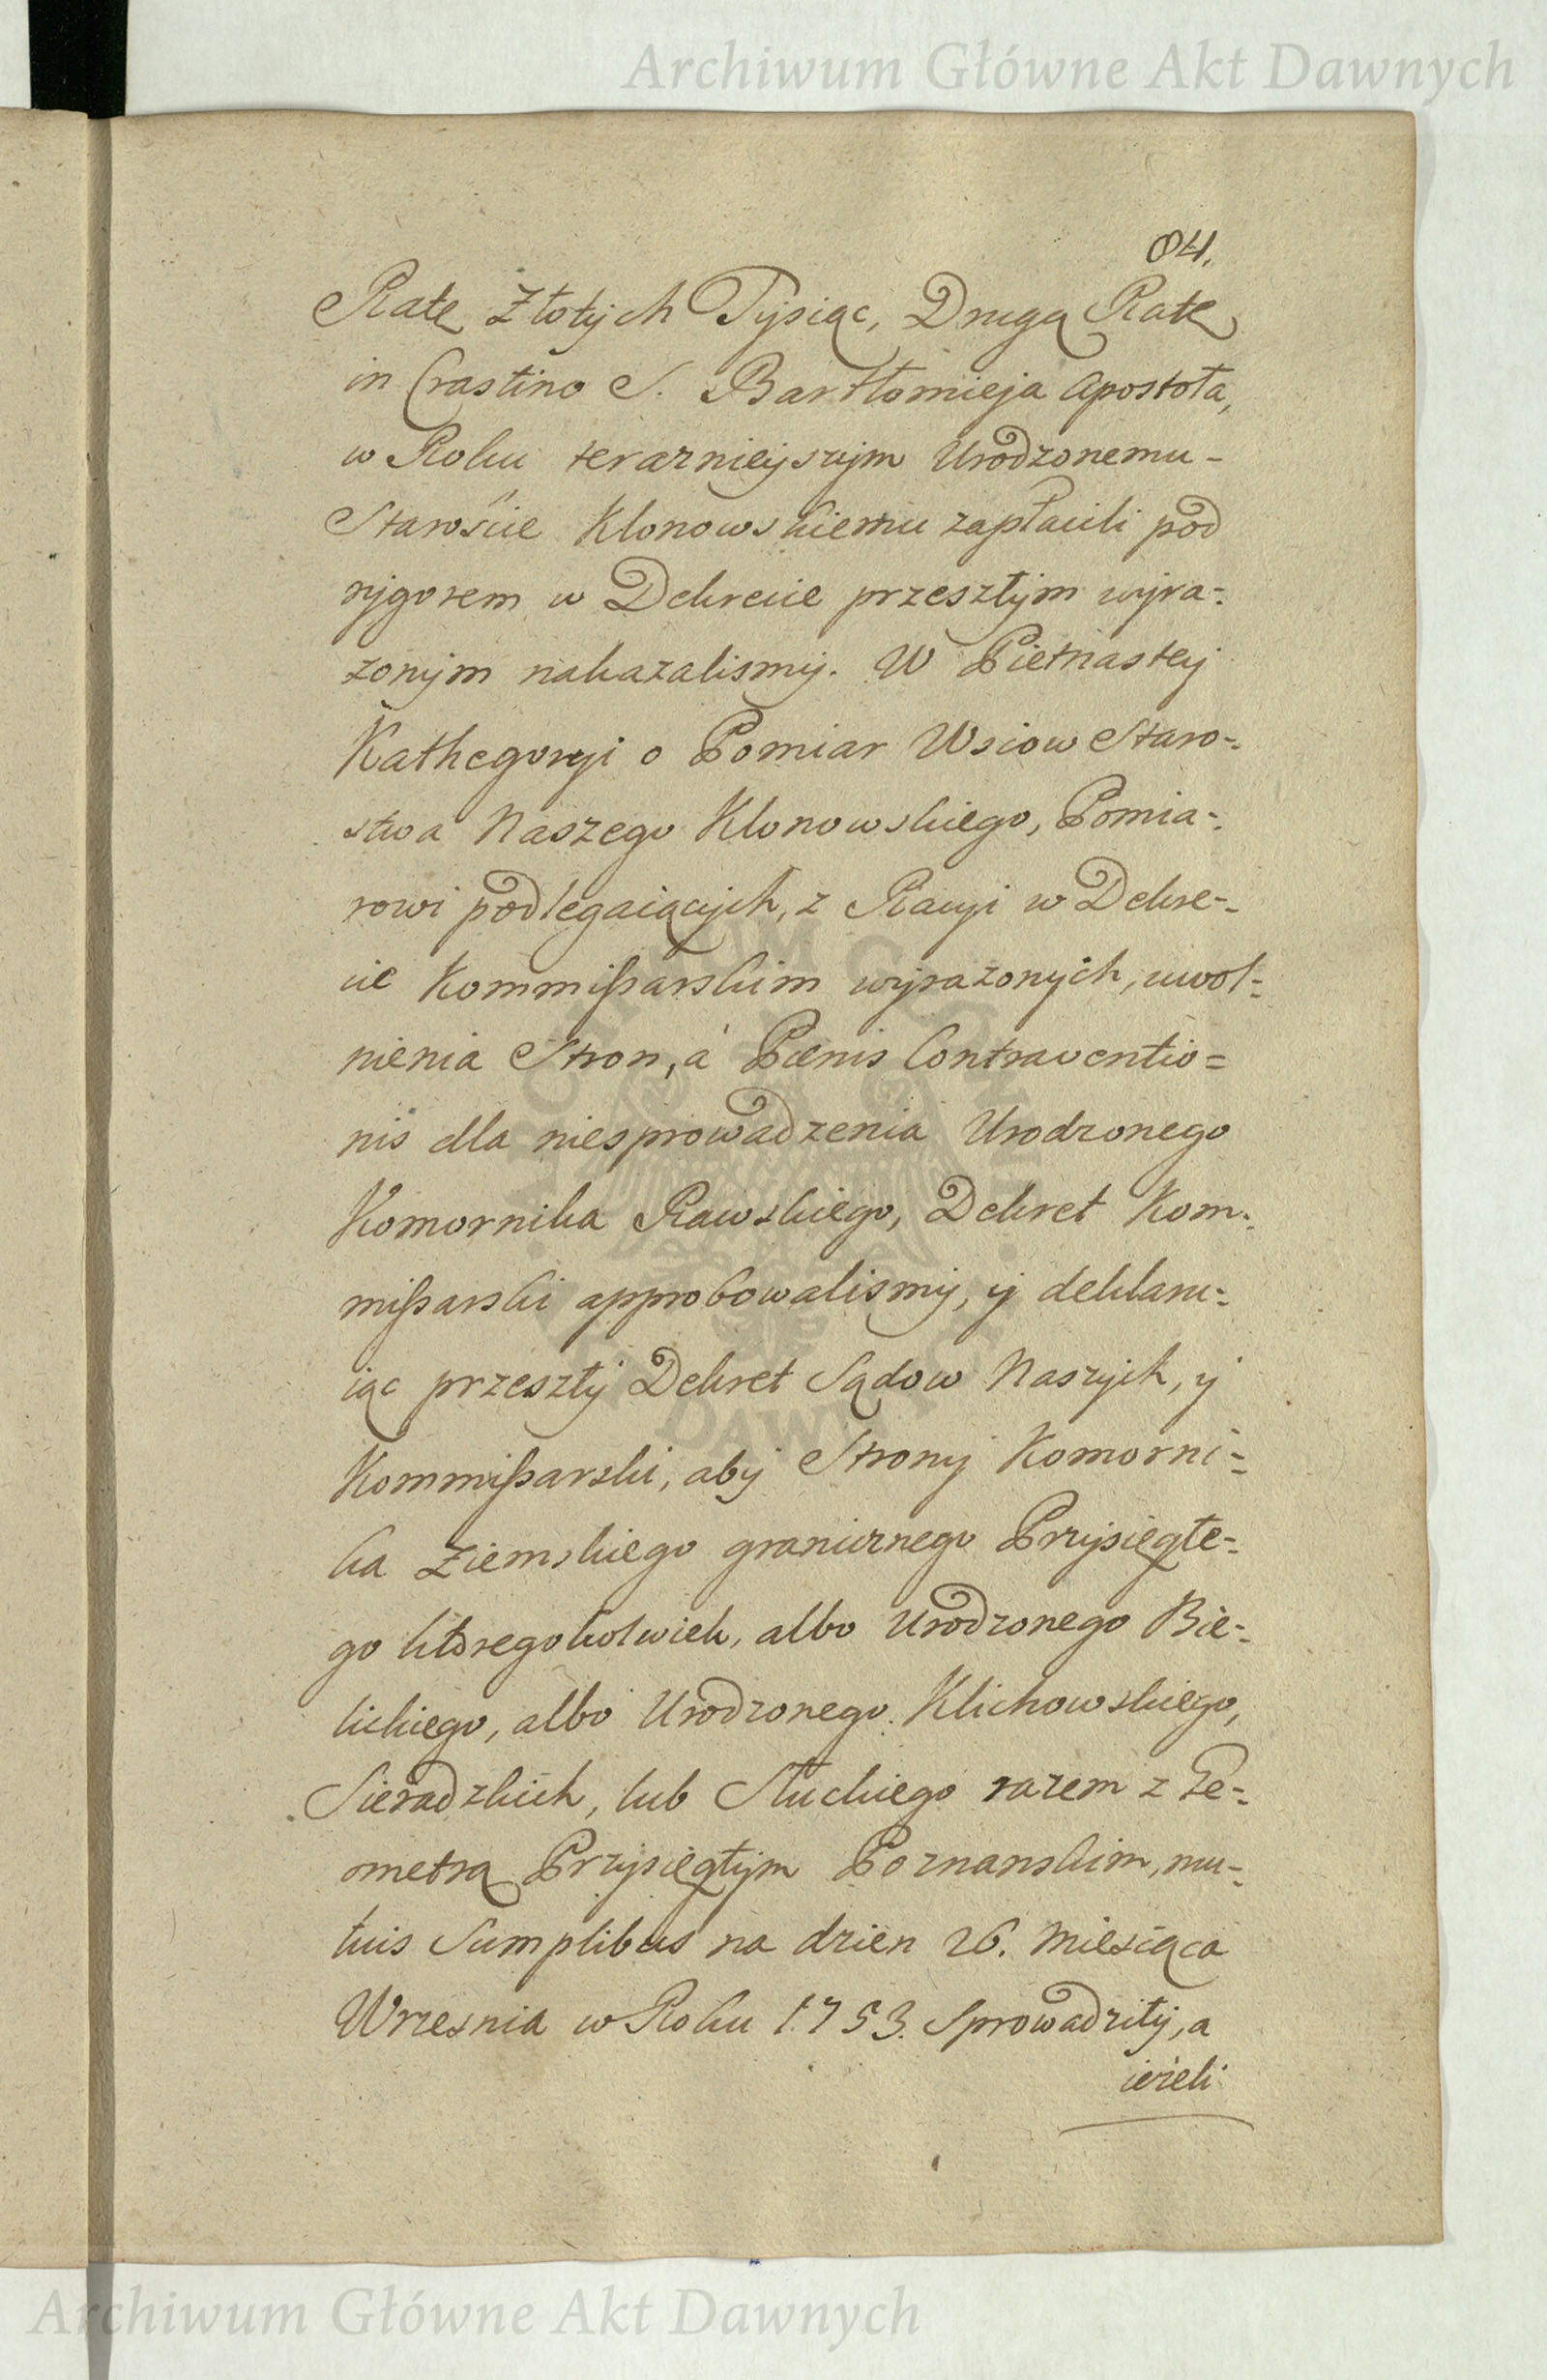 Archiwum Główne Akt Dawnych
84.
Ratę Złotych Tysiąc, Drugą Ratę
in Crastino S. Bartłomieja Apostoła,
w Roku teraznieyszym Urodzonemu-
Starościе Klonowskiemu zapłacili pod
rygorem w Dekrecie przeszłym wyra=
zonym nakazalismy. W Pietnastey
Kathegoryi o Pomiar Wsiow Staro=
stwa Naszego Klonowskiego, Pomia=
rowi podlegaiących, z Racyi w Dekre=
cie Kommißarskim wyrażonych, uwol=
nienia Stron, á Pœnis Contraventio=
nis dla niesprowadzenia Urodzonego
Komornika Rawskiego, Dekret Kom=
mißarski approbowalismy, y deklaru=
iąc przeszły Dekret Sądow Naszych, y
Kommißarski, aby Strony Komorni=
ka Ziemskiego granicznego Przysięgłe=
go ktoregokolwiek, albo Urodzonego Bie=
lickiego, albo Urodzonego Klichowskiego,
Sieradzkich, lub Słuckiego razem z Je=
ometrą Przysięgłym Poznanskim, mu=
tuis Sumptibus na dzien 26. Miesiąca
Wrzesnia w Roku 1753. sprowadziły, a
ieżeli
Archiwum Główne Akt Dawnych